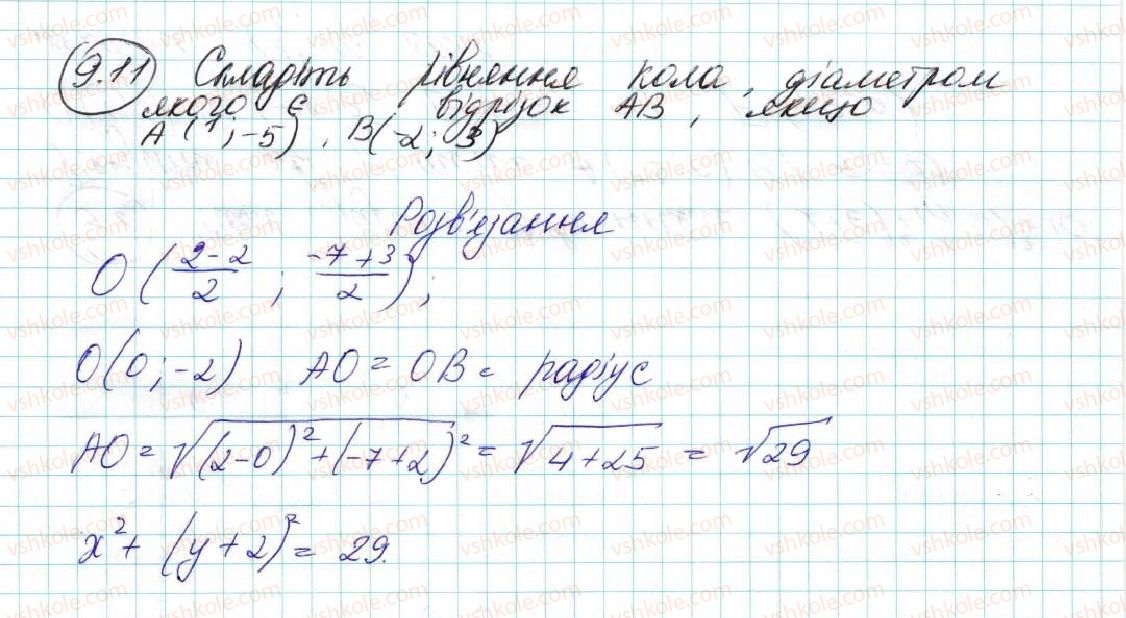 9.11 Складіть рівняння кола, діаметром
якого є відрізок AB, якщо
A (1; -5), B(-2; 3)
Розв'язання
O ( (2-2)/2 ; (-7+3)/2 ) ;
O(0; -2) AO = OB = радіус
AO = √((2-0)² + (-7+2)²) = √(4+25) = √29
x² + (y+2)² = 29.